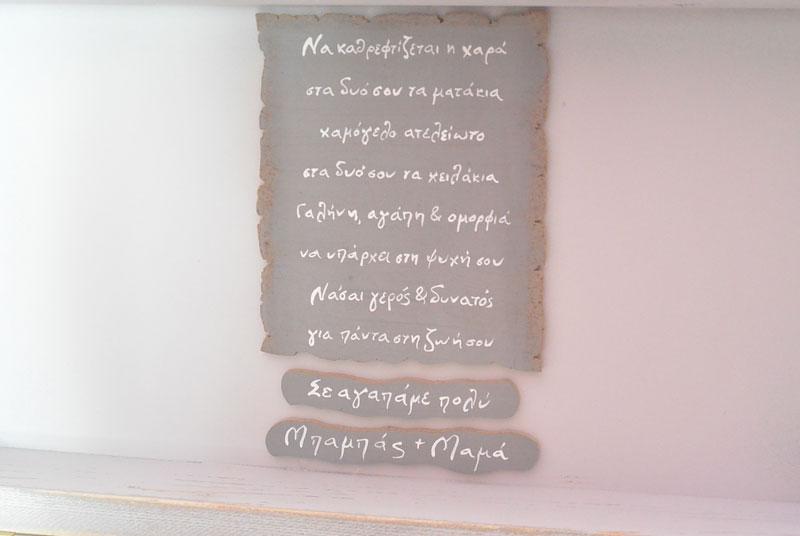 Να καθρεφτίζεται η χαρά
στα δυό σου τα ματάκια
χαμόγελο ατελείωτο
στα δυό σου τα χειλάκια
Γαλήνη, αγάπη & ομορφιά
να υπάρχει στη ψυχή σου
Νάσαι γερός & δυνατός
για πάντα στη ζωή σου
Σε αγαπάμε πολύ
Μπαμπάς + Μαμά